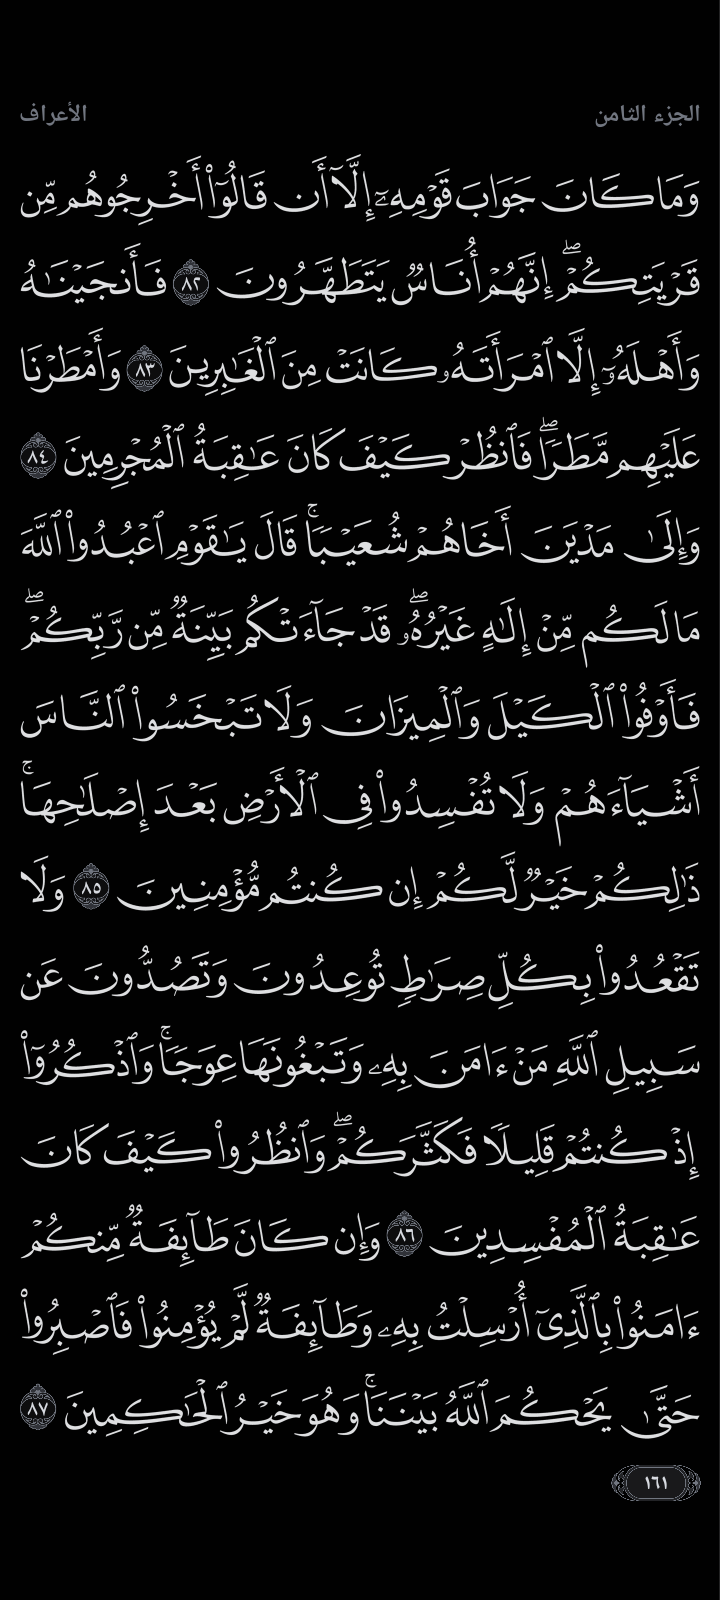 الجزء الثامن
الأعراف
وَمَا كَانَ جَوَابَ قَوْمِهِۦٓ إِلَّآ أَن قَالُوٓا۟ أَخْرِجُوهُم مِّن
قَرْيَتِكُمْ ۖ إِنَّهُمْ أُنَاسٌ يَتَطَهَّرُونَ ٨٢ فَأَنجَيْنَـٰهُ
وَأَهْلَهُۥٓ إِلَّا ٱمْرَأَتَهُۥ كَانَتْ مِنَ ٱلْغَـٰبِرِينَ ٨٣ وَأَمْطَرْنَا
عَلَيْهِم مَّطَرًا ۖ فَٱنظُرْ كَيْفَ كَانَ عَـٰقِبَةُ ٱلْمُجْرِمِينَ ٨٤
وَإِلَىٰ مَدْيَنَ أَخَاهُمْ شُعَيْبًا ۚ قَالَ يَـٰقَوْمِ ٱعْبُدُوا۟ ٱللَّهَ
مَا لَكُم مِّنْ إِلَـٰهٍ غَيْرُهُۥ ۖ قَدْ جَآءَتْكُم بَيِّنَةٌ مِّن رَّبِّكُمْ ۖ
فَأَوْفُوا۟ ٱلْكَيْلَ وَٱلْمِيزَانَ وَلَا تَبْخَسُوا۟ ٱلنَّاسَ
أَشْيَآءَهُمْ وَلَا تُفْسِدُوا۟ فِى ٱلْأَرْضِ بَعْدَ إِصْلَـٰحِهَا ۚ
ذَٰلِكُمْ خَيْرٌ لَّكُمْ إِن كُنتُم مُّؤْمِنِينَ ٨٥ وَلَا
تَقْعُدُوا۟ بِكُلِّ صِرَٰطٍ تُوعِدُونَ وَتَصُدُّونَ عَن
سَبِيلِ ٱللَّهِ مَنْ ءَامَنَ بِهِۦ وَتَبْغُونَهَا عِوَجًا ۚ وَٱذْكُرُوٓا۟
إِذْ كُنتُمْ قَلِيلًا فَكَثَّرَكُمْ ۖ وَٱنظُرُوا۟ كَيْفَ كَانَ
عَـٰقِبَةُ ٱلْمُفْسِدِينَ ٨٦ وَإِن كَانَ طَآئِفَةٌ مِّنكُمْ
ءَامَنُوا۟ بِٱلَّذِىٓ أُرْسِلْتُ بِهِۦ وَطَآئِفَةٌ لَّمْ يُؤْمِنُوا۟ فَٱصْبِرُوا۟
حَتَّىٰ يَحْكُمَ ٱللَّهُ بَيْنَنَا ۚ وَهُوَ خَيْرُ ٱلْحَـٰكِمِينَ ٨٧
١٦١